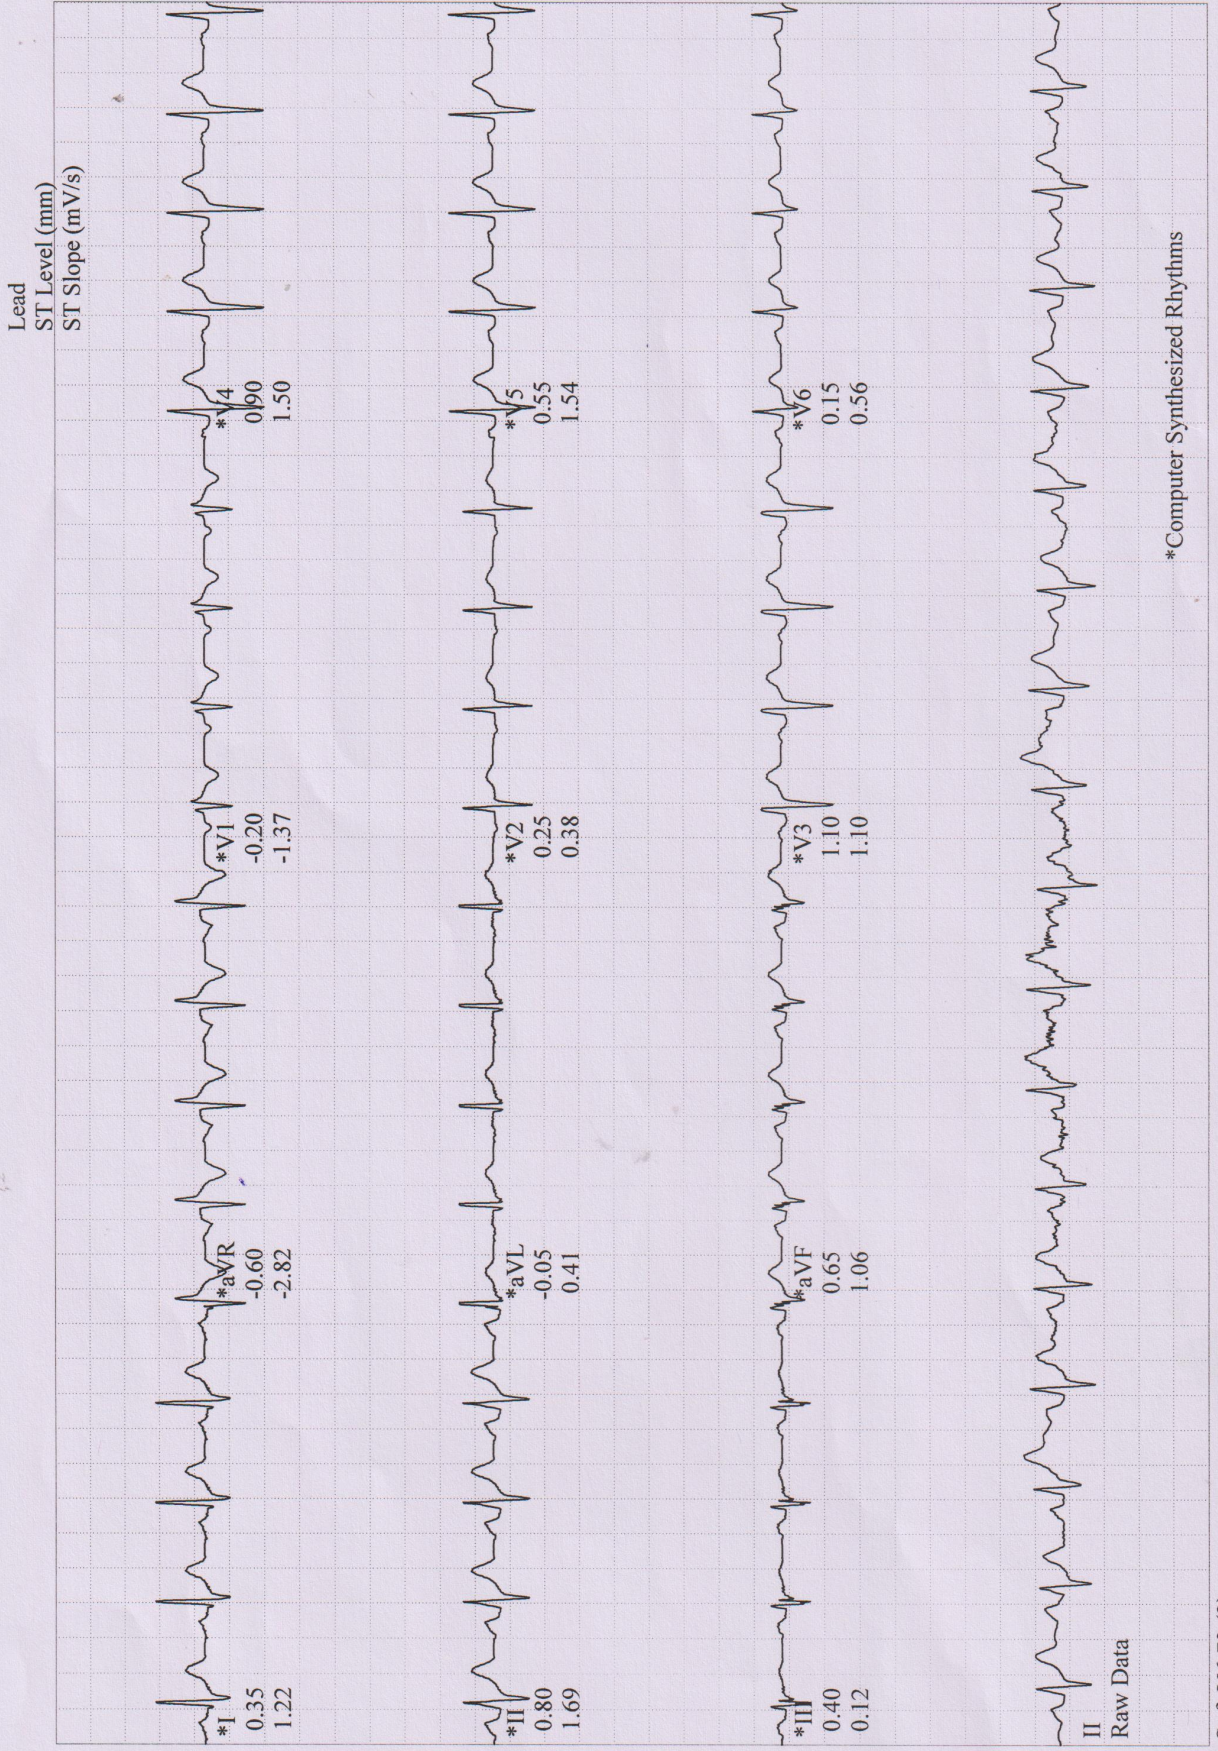 Lead
ST Level (mm)
ST Slope (mV/s)
*I
0.35
1.22
*aVR
-0.60
-2.82
*V1
-0.20
-1.37
*V4
0.90
1.50
*II
0.80
1.69
*aVL
-0.05
0.41
*V2
0.25
0.38
*V5
0.55
1.54
*III
0.40
0.12
*aVF
0.65
1.06
*V3
1.10
1.10
*V6
0.15
0.56
II
Raw Data
*Computer Synthesized Rhythms